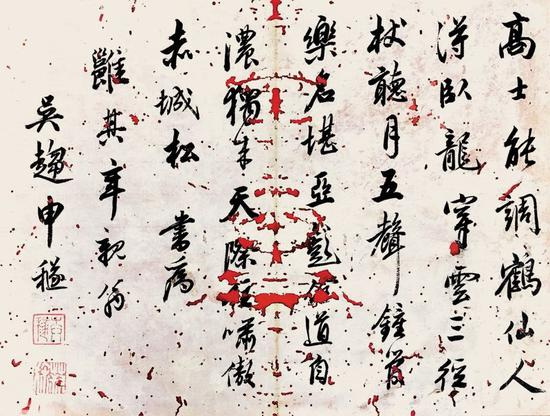 高士能調鶴仙人
得臥龍穿雲三徑
杖聽月五聲鐘管
樂名堪亞彭道自
濃獨來天際住嘯傲
赤城松 書為
其年親翁
吳趨申穟